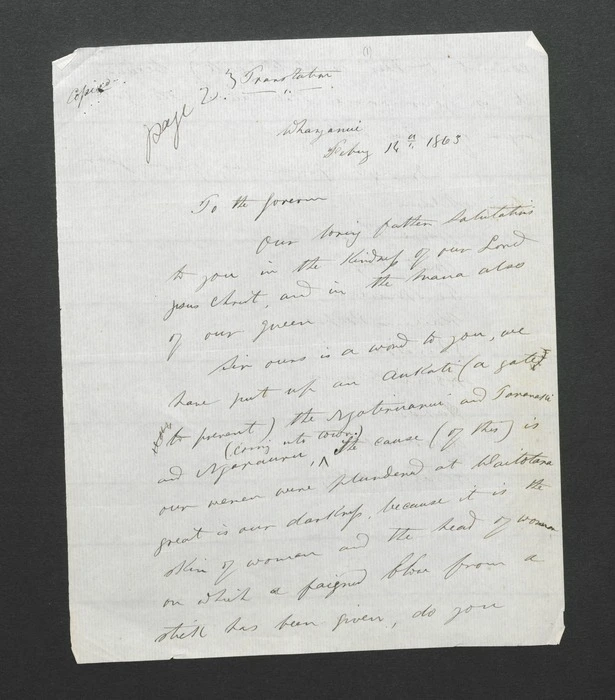 (1)
Copied.
Page 23 Translation
Whanganui
Feby 14th 1863
To the Governor
Our loving father Salutations
to you in the Kindness of our Lord
Jesus Christ, and in the mana also
of our Queen
Sir ours is a word to you, we
have put up an aukati (a gate
to prevent) the Ngatiruanui and Taranaki
(coming into town.)
and Ngarauru, the cause (of this) is
our women were plundered at Waitotara
great is our darkness, because it is the
skin of women and the head of woman
on which a feigned blow from a
stick has been given, do you